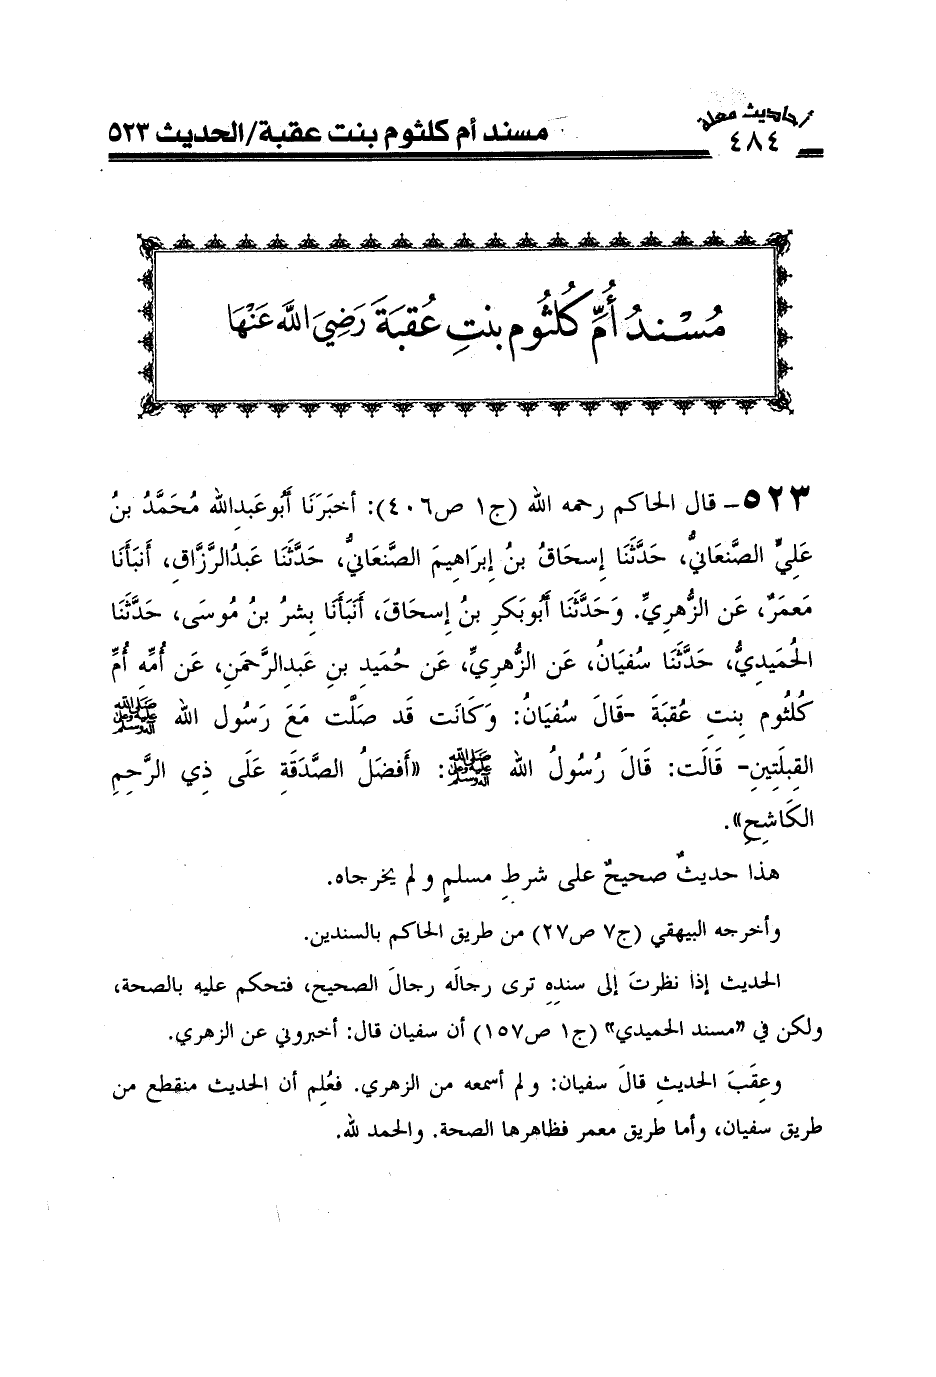 أحاديث معلة
٤٨٤
مسند أم كلثوم بنت عقبة/الحديث ٥٢٣
مُسْنَدُ أُمِّ كُلْثُومٍ بنتِ عُقبَةَ رَضِيَ اللَّهُ عَنْهَا
٥٢٣- قال الحاكم رحمه الله (ج١ ص٤٠٦): أخبَرَنَا أَبُو عَبدِالله مُحَمَّدُ بنُ
عَلِيٍّ الصَّنعَانيُّ، حَدَّثَنَا إِسحَاقُ بنُ إِبرَاهِيمَ الصَّنعَانيُّ، حَدَّثَنَا عَبدُالرَّزَّاقِ، أَنبَأَنَا
مَعمَرٌ، عَن الزُّهرِيِّ. وَحَدَّثَنَا أَبُوبَكرِ بنُ إِسحَاقَ، أَنبَأَنَا بِشرُ بنُ مُوسَى، حَدَّثَنَا
الحُمَيدِيُّ، حَدَّثَنَا سُفيَانُ، عَن الزُّهرِيِّ، عَن حُمَيدِ بنِ عَبدِالرَّحمَنِ، عَن أُمِّهِ أُمِّ
كُلثُومِ بِنتِ عُقبَةَ -قَالَ سُفيَانُ: وَكَانَت قَد صَلَّت مَعَ رَسُولِ الله ﷺ
القِبلَتَينِ- قَالَت: قَالَ رَسُولُ الله ﷺ: «أَفضَلُ الصَّدَقَةِ عَلَى ذِي الرَّحِمِ
الكَاشِحِ».
هذا حديثٌ صحيحٌ على شرطِ مسلمٍ ولم يخرجاه.
وأخرجه البيهقي (ج٧ ص٢٧) من طريق الحاكم بالسندين.
الحديث إذا نظرتَ إلى سندِهِ ترى رجالَه رجالَ الصحيح، فتحكم عليه بالصحة،
ولكن في «مسند الحميدي» (ج١ ص١٥٧) أن سفيان قال: أخبروني عن الزهري.
وعقَبَ الحديثِ قالَ سفيان: ولم أسمعه من الزهري. فعُلِم أن الحديث منقطع من
طريق سفيان، وأما طريق معمر فظاهرها الصحة. والحمد لله.